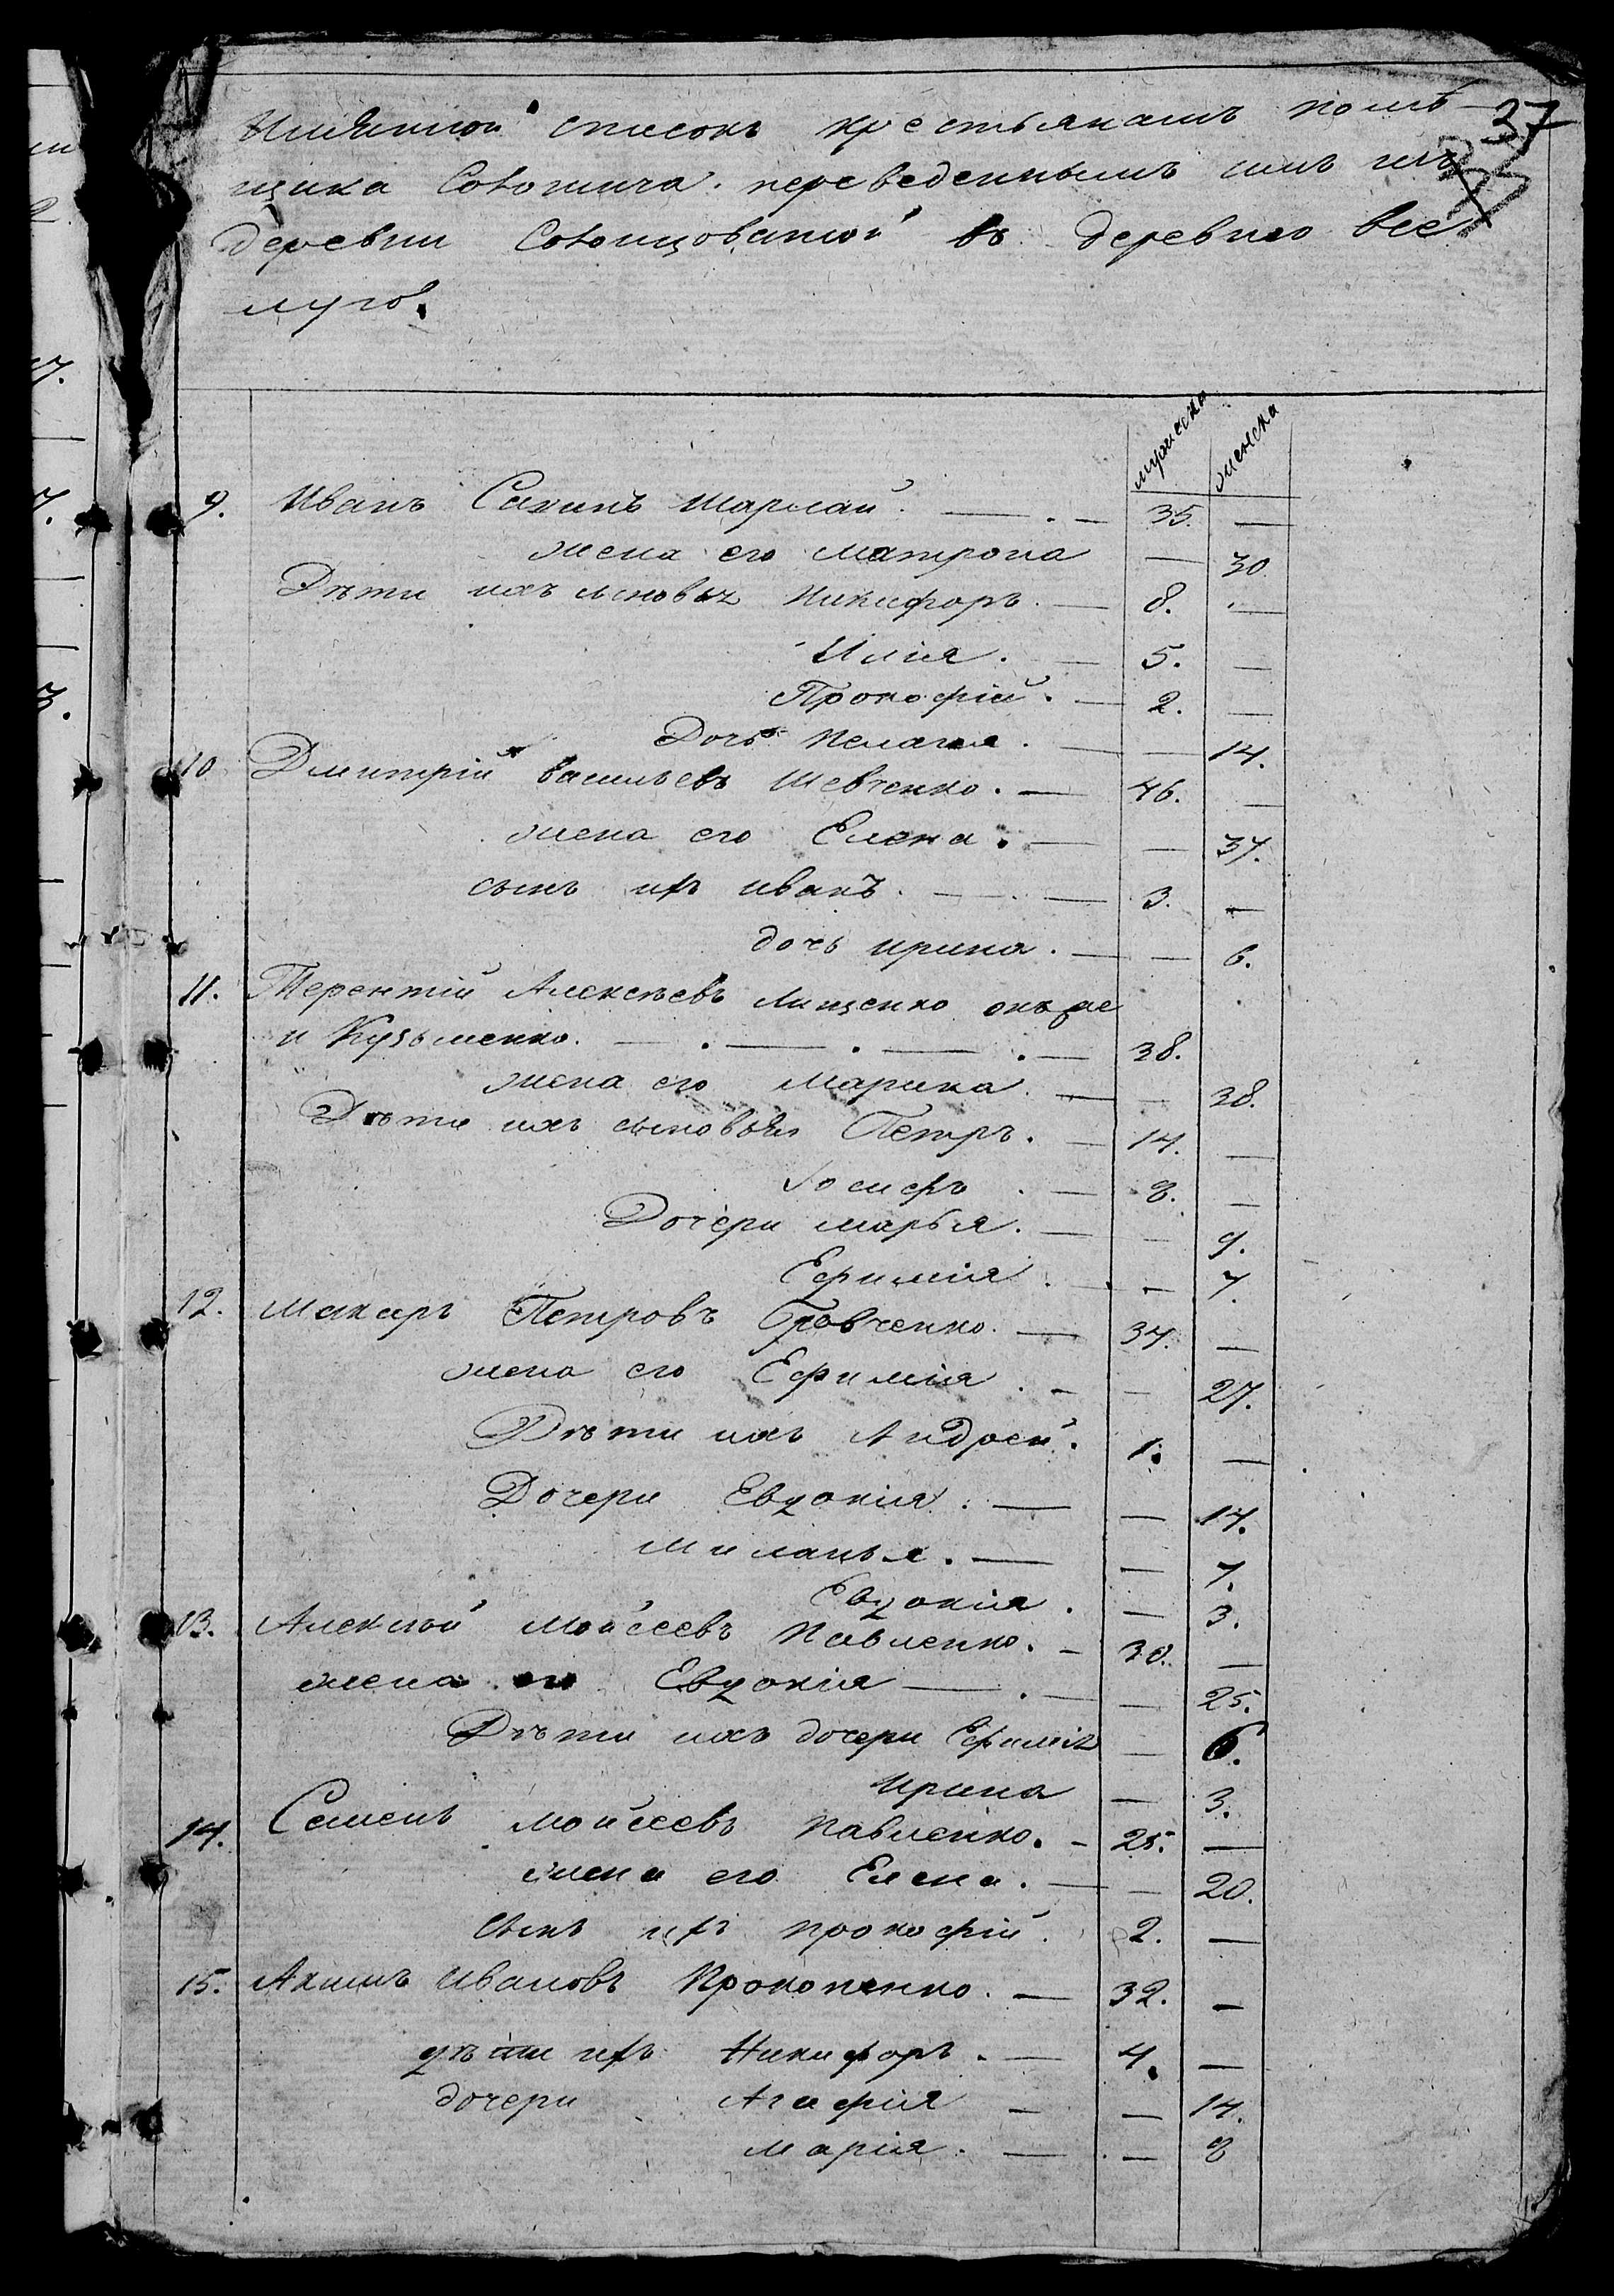 Имянной списокъ крестьянамъ помѣ- 37
щика Соботича переведеннымъ имъ изъ
деревни въ деревню
лугъ.
мужеска женска
9. Иванъ Шарлай. — 35. —
жена его Матрона — 30
Дѣти ихъ сыновья Никифоръ. — 8. —
Илія. — 5. —
Прокофій. — 2. —
Дочь Пелагея. — — 14.
10 Дмитрій Васильевъ Шевченко. — 46. —
жена его Елена. — — 37.
сынъ ихъ Иванъ. — 3. —
дочь Ирина. — — 6.
11. Терентій Алексѣевъ Лищенко онъ же
и Кузьменко. — . — . — . — 38.
жена его Марина. — — 38.
Дѣти ихъ сыновья Петръ. — 14. —
Іосифъ . — 8. —
Дочери Марья. — — 9.
Ефимія . — — 7.
12. Макаръ Петровъ — 37. —
жена его Ефимія . — — 27.
Дѣти ихъ Андрей. 1. —
Дочери Евдокія. — — 14.
Миланья. — — 7.
Евдокія. — 3.
13. Алексѣй Мойсеевъ Павленко. — 30. —
жена его Евдокія — . — — 25.
Дѣти ихъ дочери Ефимія — 6.
Ирина — 3.
14. Семенъ Мойсеевъ Павленко. — 25. —
жена его Елена. — — 20.
сынъ ихъ Прокофій. 2. —
15. Акимъ Ивановъ Прокопенко. — 32. —
дѣти ихъ Никифоръ. — 4. —
дочери Агафія — — 14.
Марія. — — 8